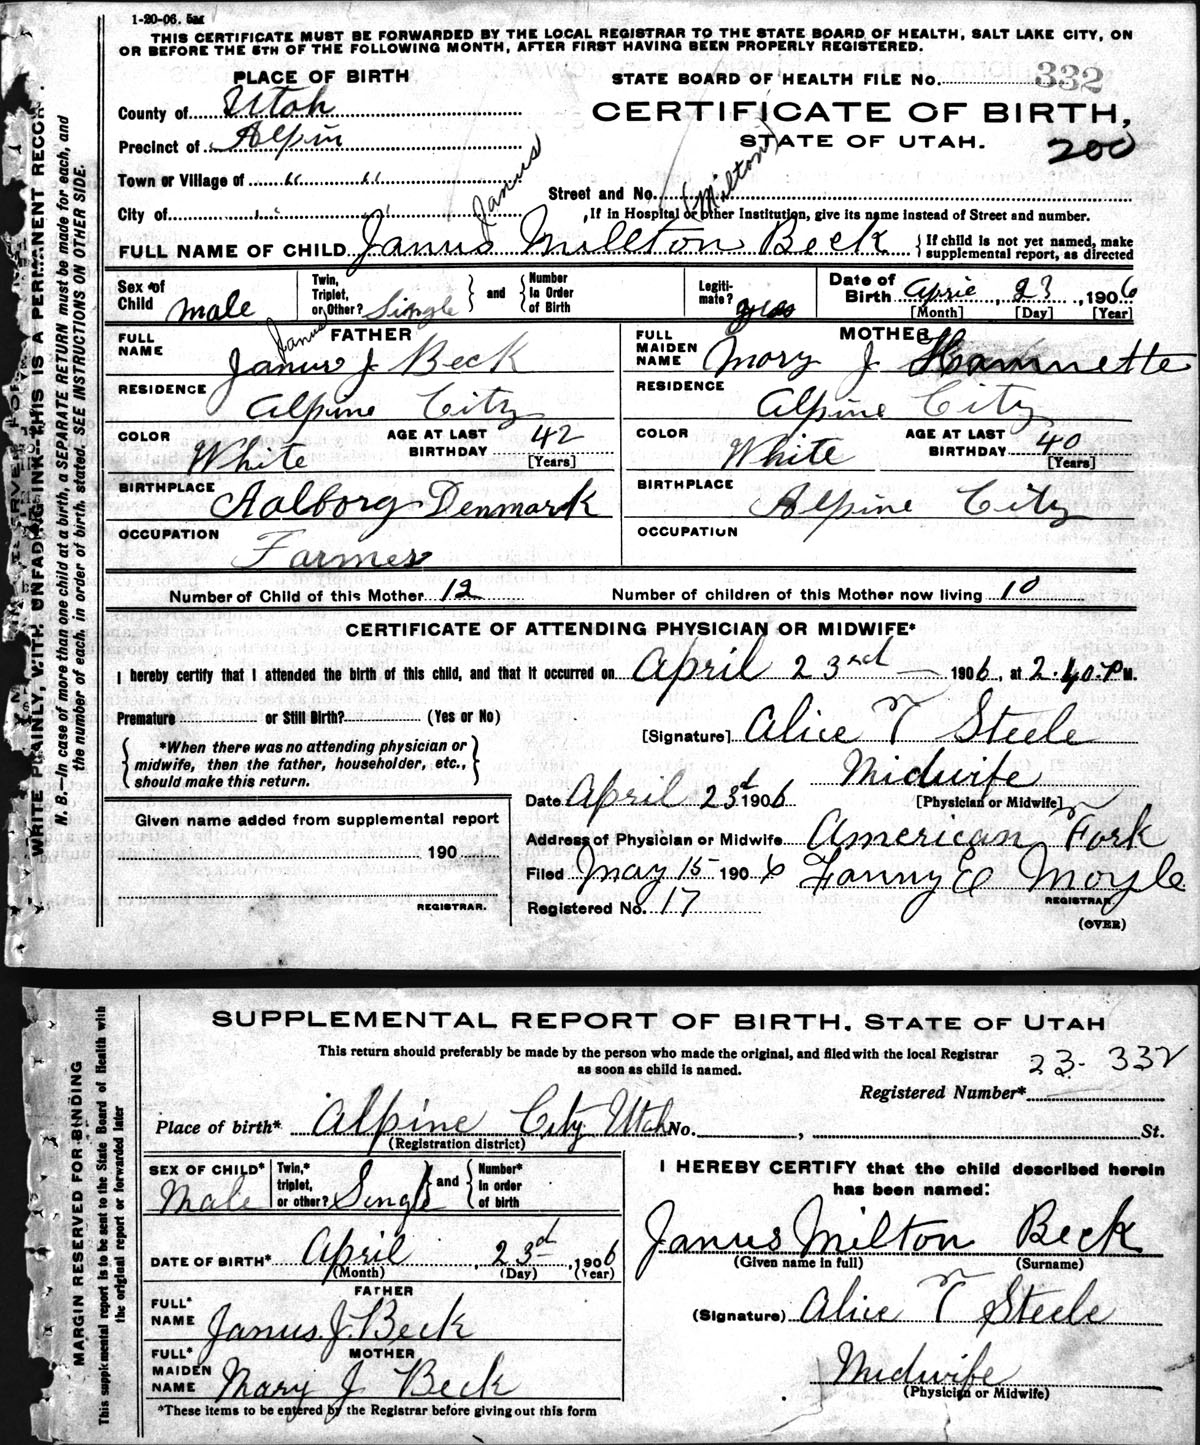 1-20-06. 5M
THIS CERTIFICATE MUST BE FORWARDED BY THE LOCAL REGISTRAR TO THE STATE BOARD OF HEALTH, SALT LAKE CITY, ON
OR BEFORE THE 5TH OF THE FOLLOWING MONTH, AFTER FIRST HAVING BEEN PROPERLY REGISTERED.
PLACE OF BIRTH
STATE BOARD OF HEALTH FILE No. 332
County of Utah
CERTIFICATE OF BIRTH,
Precinct of Alpin
STATE OF UTAH.
200
Town or Village of " "
Street and No.
City of " "
Janus (Milton)
If in Hospital or other Institution, give its name instead of Street and number.
FULL NAME OF CHILD Janus Millton Beck { If child is not yet named, make supplemental report, as directed
Sex of Child Male
Twin, Triplet, or Other? Single } and { Number In Order of Birth
Legitimate? yes
Date of Birth April, 23, 1906
[Month] [Day] [Year]
FATHER
Janus
FULL NAME Janus J Beck
RESIDENCE Alpine City
COLOR White AGE AT LAST BIRTHDAY 42 [Years]
BIRTHPLACE Aalborg Denmark
OCCUPATION Farmer
MOTHER
FULL MAIDEN NAME Mary J Hamnette
RESIDENCE Alpine City
COLOR White AGE AT LAST BIRTHDAY 40 [Years]
BIRTHPLACE Alpine City
OCCUPATION
Number of Child of this Mother 12 Number of children of this Mother now living 10
CERTIFICATE OF ATTENDING PHYSICIAN OR MIDWIFE*
I hereby certify that I attended the birth of this child, and that it occurred on April 23rd 1906, at 2.40.P M.
Premature or Still Birth? (Yes or No)
[Signature] Alice T Steele
{ *When there was no attending physician or
midwife, then the father, householder, etc.,
should make this return. }
Midwife
[Physician or Midwife]
Date April 23d 1906
Given name added from supplemental report
190
REGISTRAR.
Address of Physician or Midwife American Fork
Filed May 15 1906 Fanny E Moyle
REGISTRAR.
Registered No. 17
(OVER)
WRITE PLAINLY, WITH UNFADING INK—THIS IS A PERMANENT RECORD.
N. B.—In case of more than one child at a birth, a SEPARATE RETURN must be made for each, and
the number of each, in order of birth, stated. SEE INSTRUCTIONS ON OTHER SIDE.
SUPPLEMENTAL REPORT OF BIRTH, STATE OF UTAH
This return should preferably be made by the person who made the original, and filed with the local Registrar
as soon as child is named.
23-332
Registered Number*
Place of birth* Alpine City Utah No. , St.
(Registration district)
SEX OF CHILD* Male
Twin,* triplet, or other? Single } and { Number* In order of birth
I HEREBY CERTIFY that the child described herein
has been named:
Janus Milton Beck
(Given name in full) (Surname)
DATE OF BIRTH* April, 23d, 1906
(Month) (Day) (Year)
FATHER
FULL* NAME Janus. J. Beck
(Signature) Alice T Steele
MOTHER
FULL* MAIDEN NAME Mary J Beck
Midwife
(Physician or Midwife)
*These items to be entered by the Registrar before giving out this form
MARGIN RESERVED FOR BINDING
This supplemental report is to be sent to the State Board of Health with
the original report or forwarded later